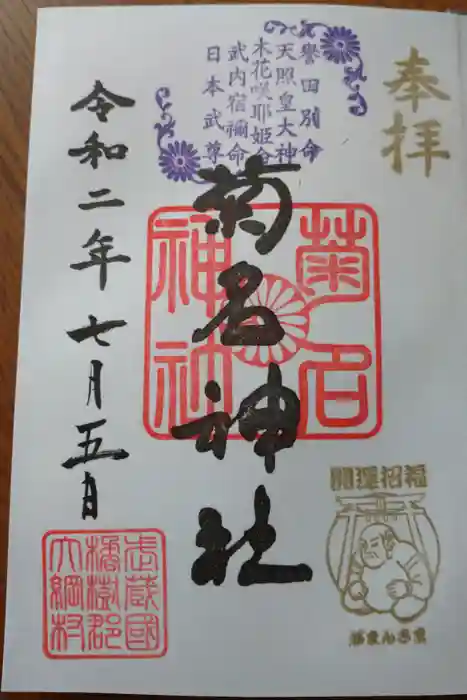 奉拝
譽田別命
天照皇大神
木花咲耶姫命
武内宿禰命
日本武尊
菊名神社
菊名
神社
令和二年七月五日
開運招福
がまんさま
武蔵國
橘樹郡
大綱村